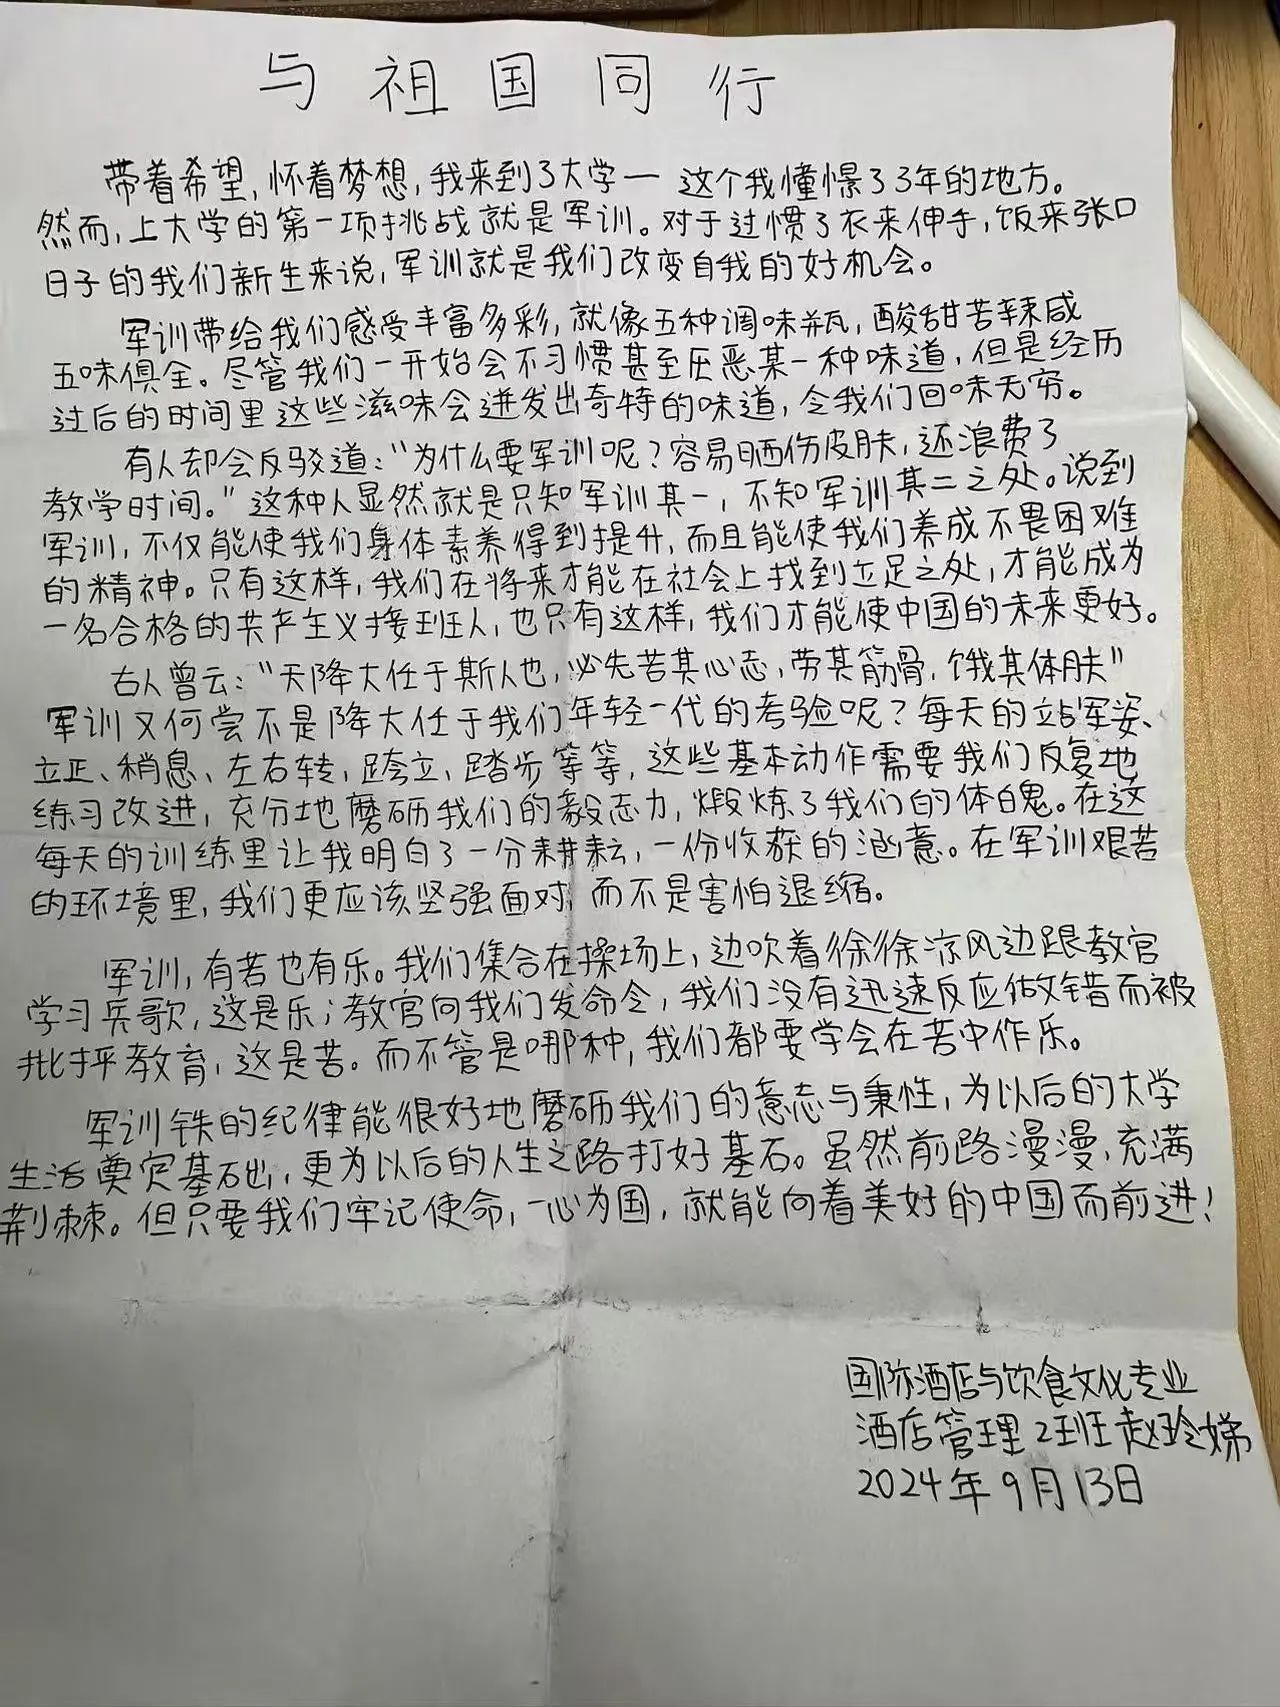 与祖国同行
带着希望,怀着梦想,我来到了大学一 这个我憧憬了3年的地方。
然而,上大学的第一项挑战就是军训。对于过惯了衣来伸手,饭来张口
日子的我们新生来说,军训就是我们改变自我的好机会。
军训带给我们感受丰富多彩,就像五种调味瓶,酸甜苦辣咸
五味俱全。尽管我们一开始会不习惯甚至厌恶某一种味道,但是经历
过后的时间里这些滋味会迸发出奇特的味道,令我们回味无穷。
有人却会反驳道:“为什么要军训呢?容易晒伤皮肤,还浪费了
教学时间。”这种人显然就是只知军训其一,不知军训其二之处。说到
军训,不仅能使我们身体素养得到提升,而且能使我们养成不畏困难
的精神。只有这样,我们在将来才能在社会上找到立足之处,才能成为
一名合格的共产主义接班人,也只有这样,我们才能使中国的未来更好。
古人曾云:“天降大任于斯人也,必先苦其心志,劳其筋骨,饿其体肤”
军训又何尝不是降大任于我们年轻一代的考验呢?每天的站军姿、
立正、稍息、左右转,跨立,踏步等等,这些基本动作需要我们反复地
练习改进,充分地磨砺我们的毅志力,煅炼了我们的体魄。在这
每天的训练里让我明白了一分耕耘,一份收获的涵意。在军训艰苦
的环境里,我们更应该坚强面对,而不是害怕退缩。
军训,有苦也有乐。我们集合在操场上,边吹着徐徐凉风边跟教官
学习兵歌,这是乐;教官向我们发命令,我们没有迅速反应做错而被
批抨教育,这是苦。而不管是哪种,我们都要学会在苦中作乐。
军训铁的纪律能很好地磨砺我们的意志与秉性,为以后的大学
生活奠定基础,更为以后的人生之路打好基石。虽然前路漫漫,充满
荆棘。但只要我们牢记使命,一心为国,就能向着美好的中国而前进!
国际酒店与饮食文化专业
酒店管理2班赵玲娣
2024年9月13日